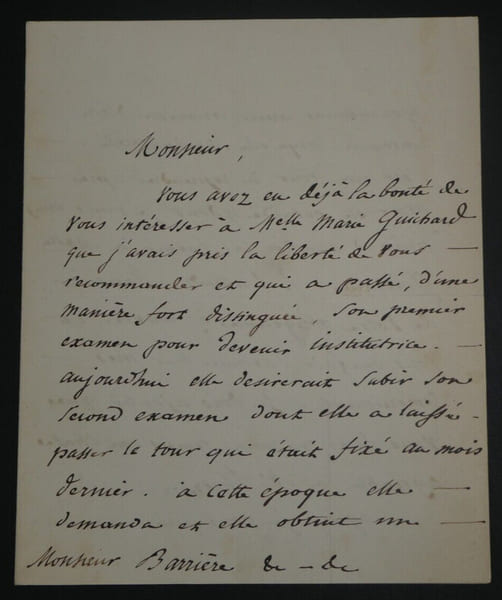 Monsieur,
Vous avez eu déjà la bonté de
vous intéresser à Melle Marie Guichard
que j'avais pris la liberté de vous —
recommander et qui a passé, d'une
manière fort distinguée, son premier
examen pour devenir institutrice. —
aujourdhui elle desirerait subir son
second examen dont elle a laissé -
passer le tour qui était fixé au mois
dernier. à cette époque elle —
demanda et elle obtint un —
Monsieur Barrière de - de